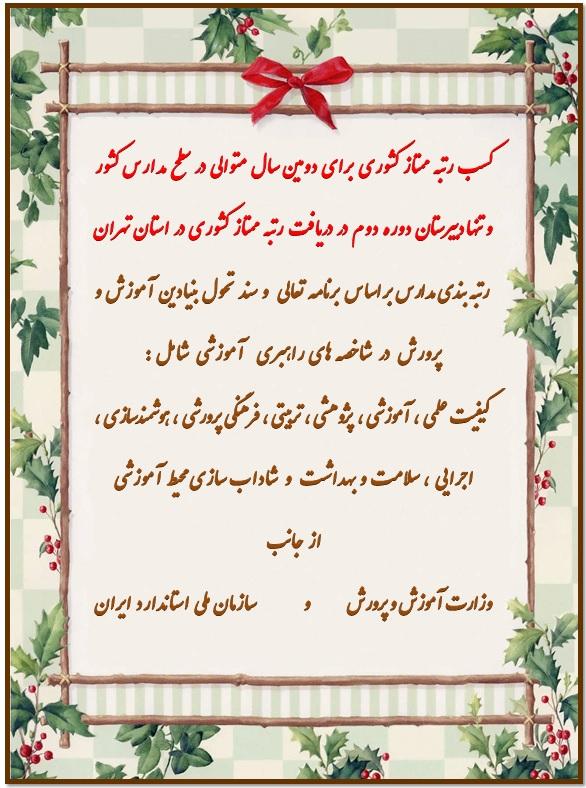 کسب رتبه ممتاز کشوری برای دومین سال متوالی در سطح مدارس کشور
و تنها دبیرستان دوره دوم در دریافت رتبه ممتاز کشوری در استان تهران
رتبه بندی مدارس بر اساس برنامه تعالی و سند تحول بنیادین آموزش و
پرورش در شاخصه های راهبری آموزشی شامل :
کیفیت علمی ، آموزشی ، پژوهشی ، تربیتی ، فرهنگی پرورشی ، هوشمندسازی ،
اجرایی ، سلامت و بهداشت و شاداب سازی محیط آموزشی
از جانب
وزارت آموزش و پرورش و سازمان ملی استاندارد ایران